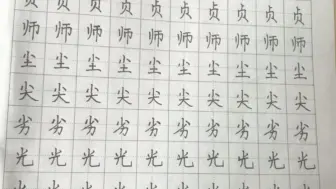 贞贞贞贞贞贞贞贞贞贞
师师师师师师师师师师
尘尘尘尘尘尘尘尘尘尘
尖尖尖尖尖尖尖尖尖尖
劣劣劣劣劣劣劣劣劣劣
光光光光光光光光光光